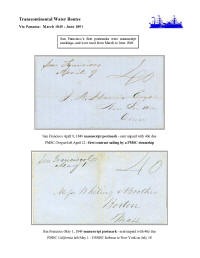 Transcontinental Water Routes
Via Panama: March 1849 - June 1851
San Francisco's first postmarks were manuscript
markings and were used from March to June 1849
San Francisco
April 9
40
New
Conn
San Francisco April 9, 1849 manuscript postmark - sent unpaid with 40¢ due
PMSC Oregon left April 12 - first contract sailing by a PMSC steamship
San Francisco
May 1
40
Whiting & Brother
Boston
Mass
San Francisco May 1, 1849 manuscript postmark - sent unpaid with 40¢ due
PMSC California left May 1